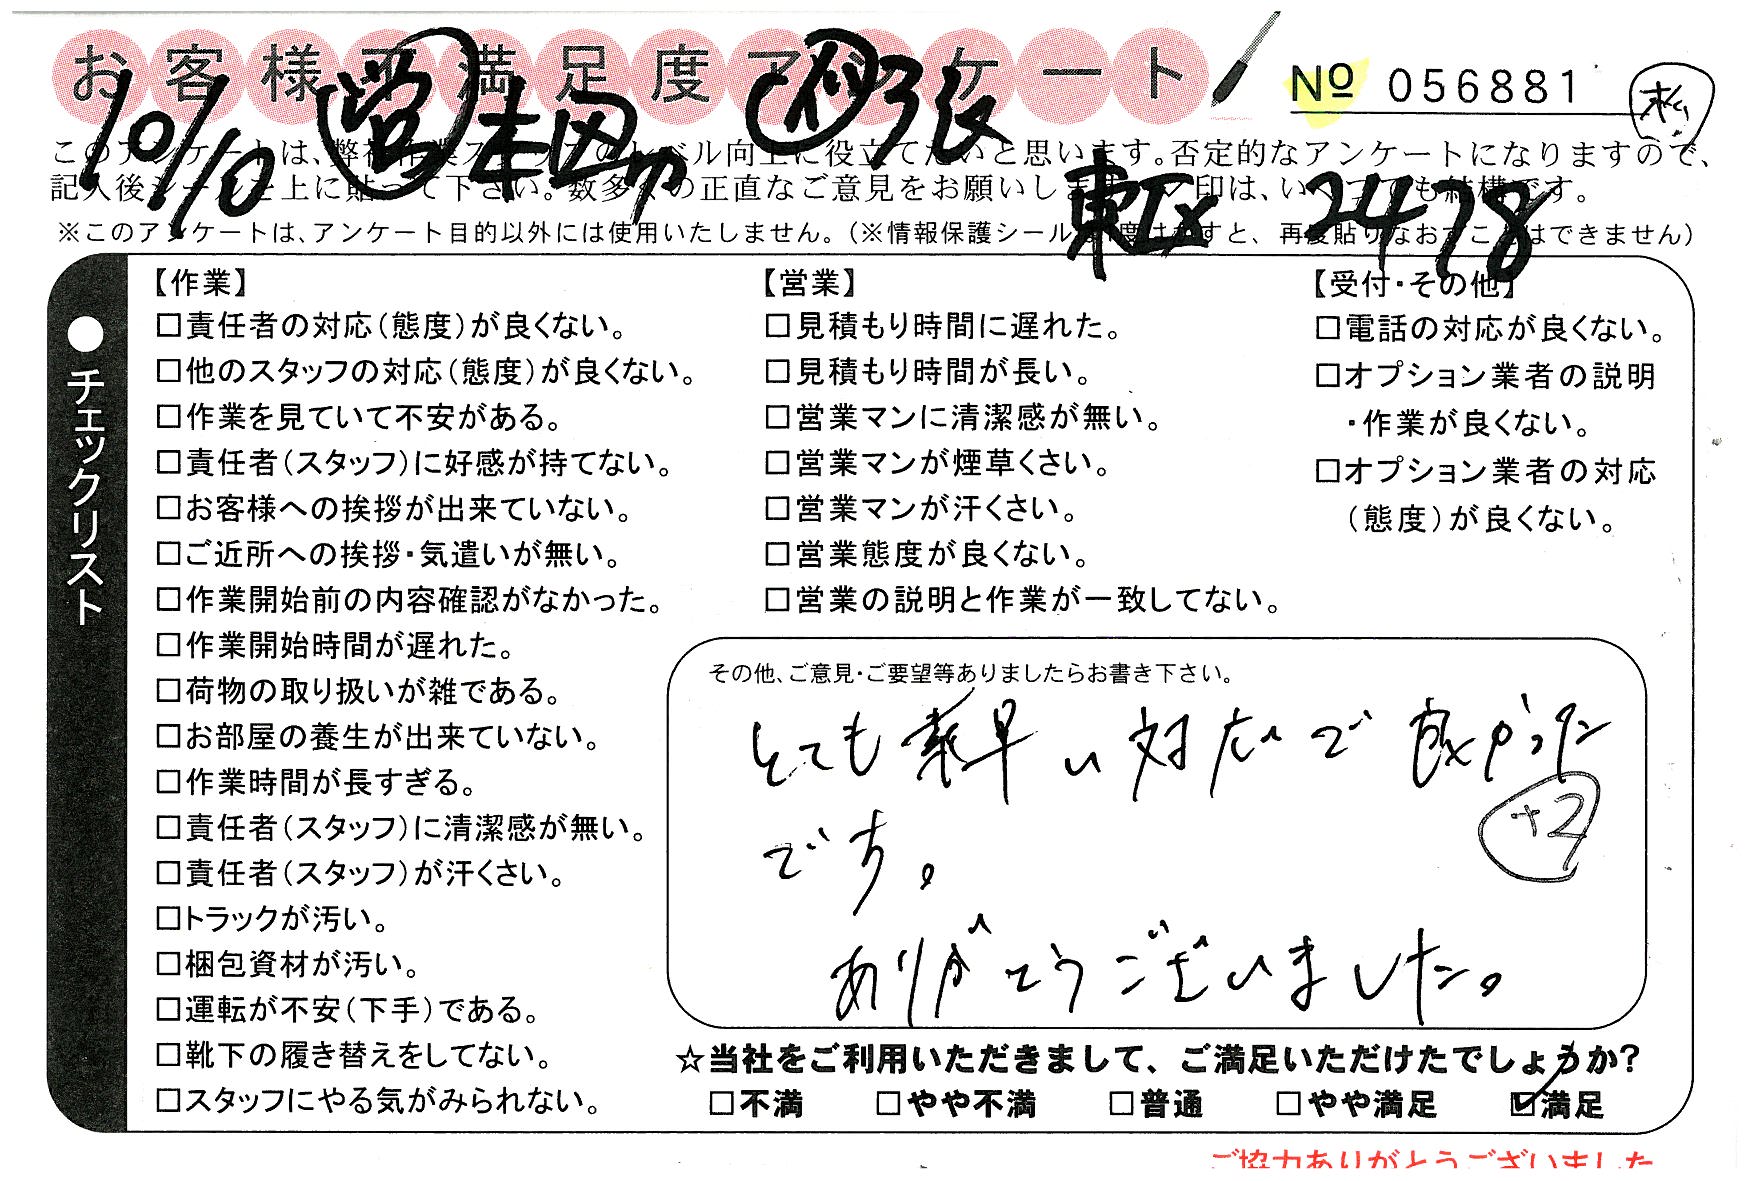 お客様不満足度アンケート
№ 056881
松
10/10 営 本田 作 弓張
東区 2478
このアンケートは、弊社作業スタッフのレベル向上に役立てたいと思います。否定的なアンケートになりますので、
記入後シールを上に貼って下さい。数多くの正直なご意見をお願いします。レ印は、いくつでも結構です。
※このアンケートは、アンケート目的以外には使用いたしません。（※情報保護シールは1度はがすと、再度貼りなおすことはできません）
●チェックリスト
【作業】
□責任者の対応（態度）が良くない。
□他のスタッフの対応（態度）が良くない。
□作業を見ていて不安がある。
□責任者（スタッフ）に好感が持てない。
□お客様への挨拶が出来ていない。
□ご近所への挨拶・気遣いが無い。
□作業開始前の内容確認がなかった。
□作業開始時間が遅れた。
□荷物の取り扱いが雑である。
□お部屋の養生が出来ていない。
□作業時間が長すぎる。
□責任者（スタッフ）に清潔感が無い。
□責任者（スタッフ）が汗くさい。
□トラックが汚い。
□梱包資材が汚い。
□運転が不安（下手）である。
□靴下の履き替えをしてない。
□スタッフにやる気がみられない。
【営業】
□見積もり時間に遅れた。
□見積もり時間が長い。
□営業マンに清潔感が無い。
□営業マンが煙草くさい。
□営業マンが汗くさい。
□営業態度が良くない。
□営業の説明と作業が一致してない。
【受付・その他】
□電話の対応が良くない。
□オプション業者の説明
・作業が良くない。
□オプション業者の対応
（態度）が良くない。
その他、ご意見・ご要望等ありましたらお書き下さい。
とても素早い対応で良かった
です。
+2
ありがとうございました。
☆当社をご利用いただきまして、ご満足いただけたでしょうか？
□不満 □やや不満 □普通 □やや満足 ☑満足
ご協力ありがとうございました